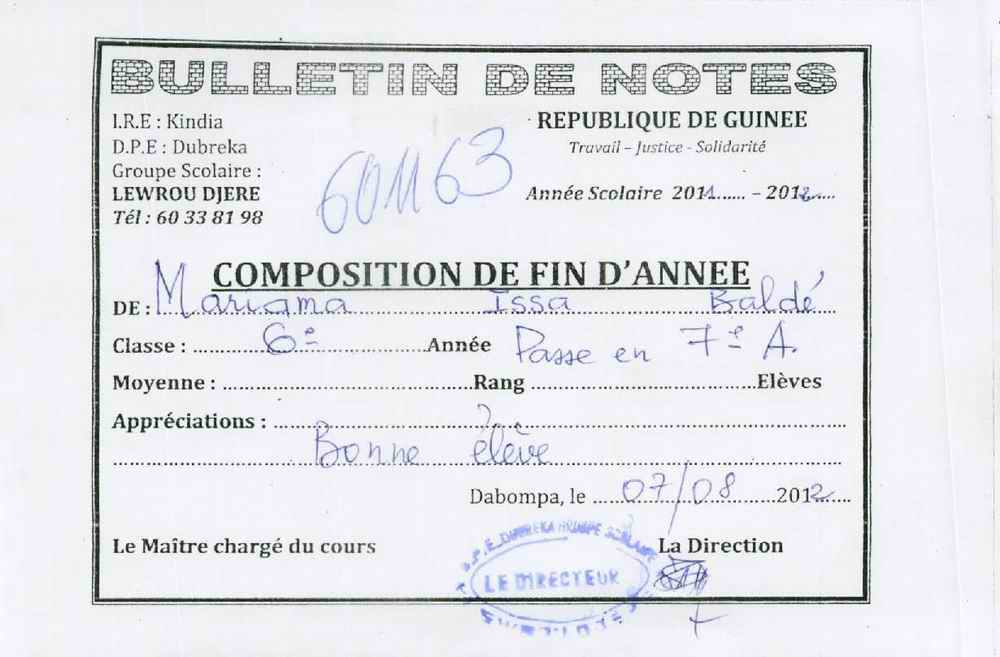 BULLETIN DE NOTES
I.R.E : Kindia
D.P.E : Dubreka
Groupe Scolaire :
LEWROU DJERE
Tél : 60 33 81 98
601163
REPUBLIQUE DE GUINEE
Travail – Justice - Solidarité
Année Scolaire 2011...... – 2012.....
COMPOSITION DE FIN D'ANNEE
DE : Mariama Issa Baldé
Classe : 6e Année Passe en 7e A.
Moyenne : ........ Rang ........ Elèves
Appréciations : ........
Bonne élève
Dabompa, le 07/08 2012
Le Maître chargé du cours
La Direction
D.P.E. DUBREKA GROUPE SCOLAIRE
LE DIRECTEUR